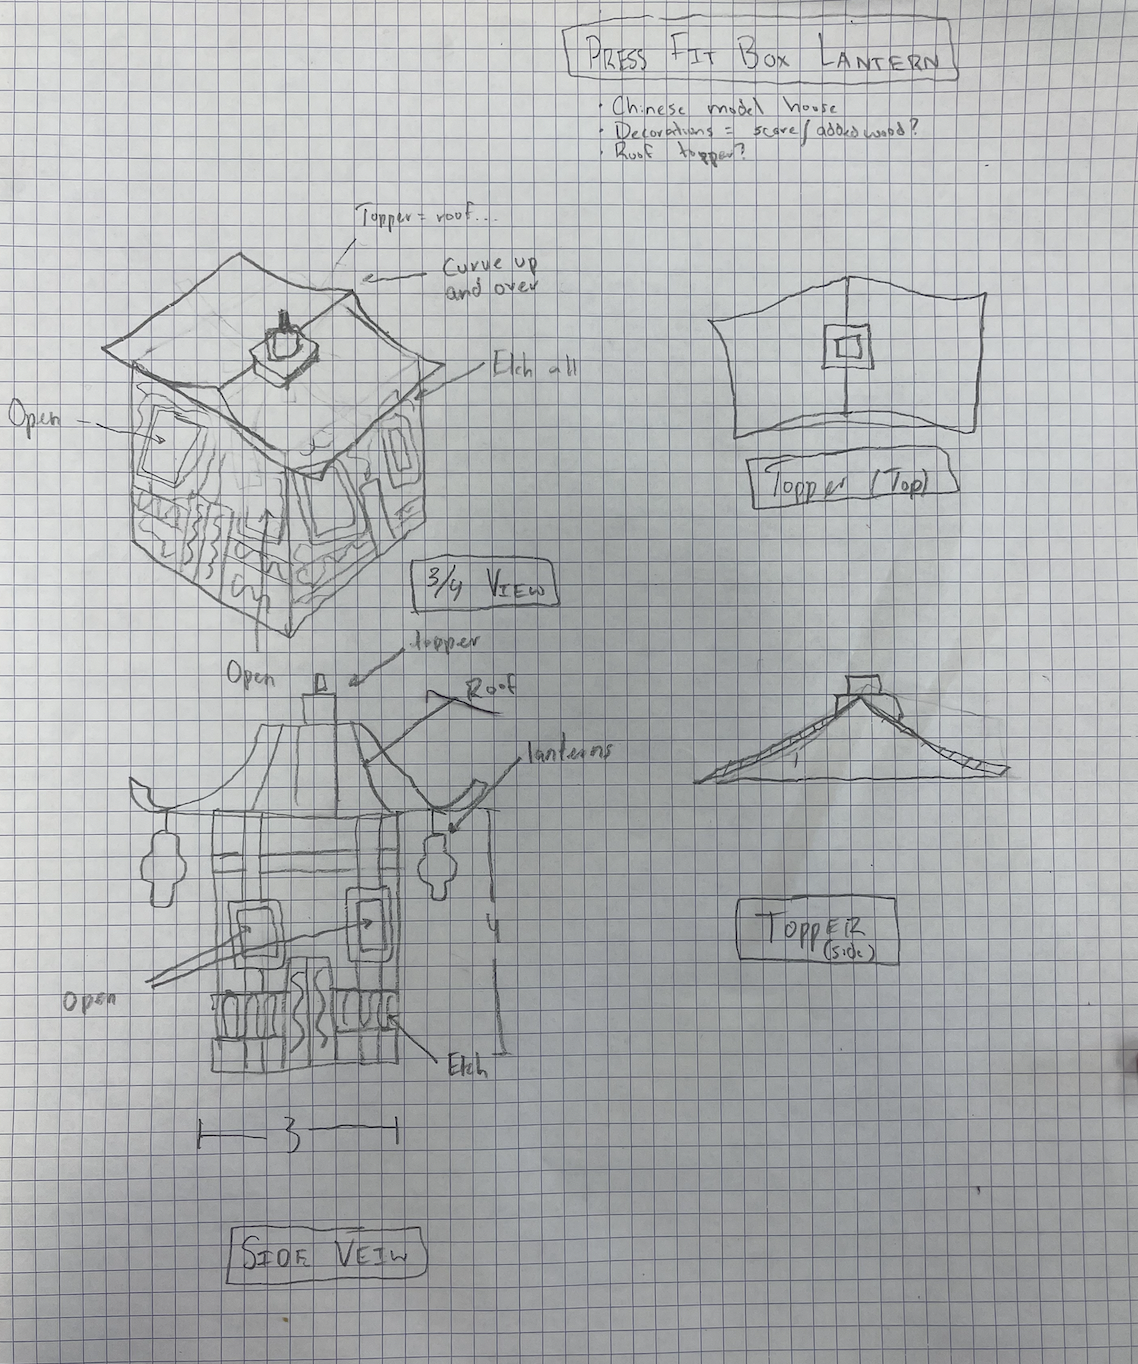 PRESS FIT BOX LANTERN
· Chinese model house
· Decorations = score/added wood?
· Roof topper?
Topper = roof...
Curve up
and over
Etch all
Open
Topper (Top)
3/4 VIEW
Open
topper
Roof
lanterns
4
TOPPER
(side)
Open
Etch
3
SIDE VEIW